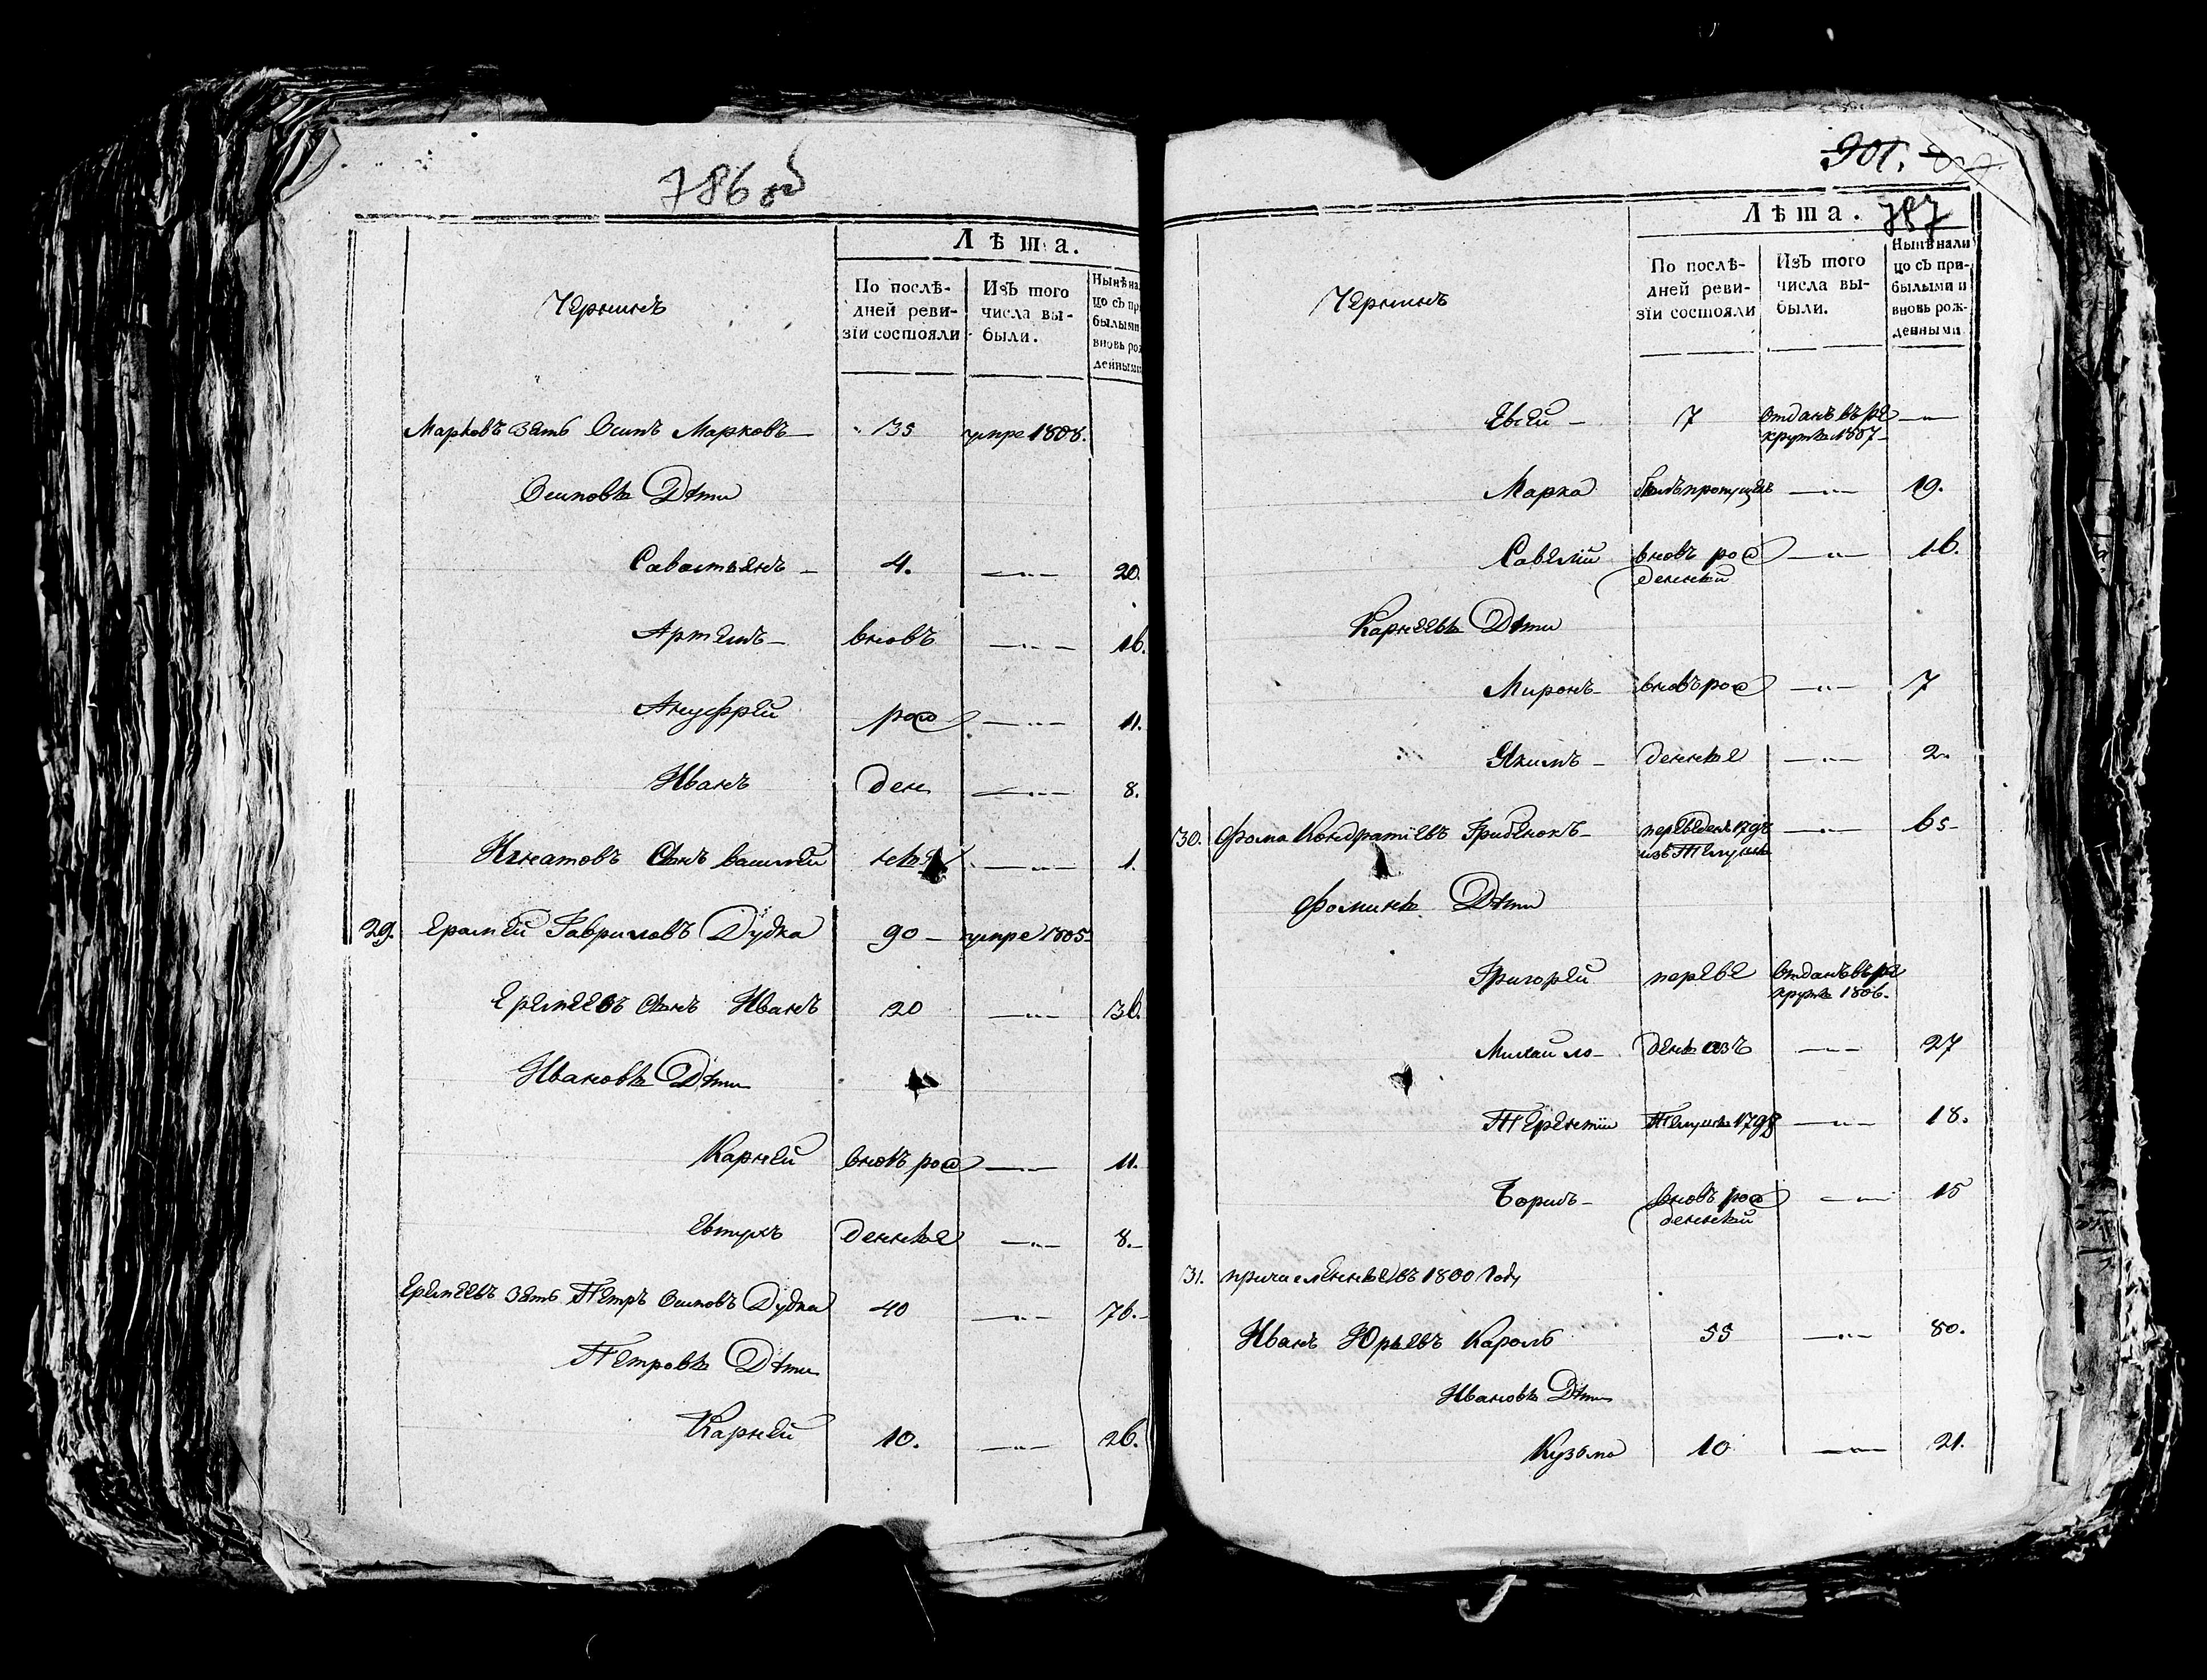 786 об
Лѣта.
Чернинъ
По послѣ-
дней реви-
зіи состояли
Изъ того
числа вы-
были.
Нынѣ на
цо съ пр
былыми
вновь рож
денными
Марковъ зять Осипъ Марковъ — 35 умре 1808.
Осиповы Дѣти
Савостьянъ — 4. —"— 20.
Артемъ — вновь —"— 16.
Ануфрей рож —"— 11.
Иванъ ден —"— 8.
Игнатовъ Сынъ василей —"— 1.
29. Еремѣй Гавриловъ Дудка 90 — умре 1805
Еремѣевъ Сынъ Иванъ 20 —"— 36.
Ивановы Дѣти
Карнѣй вновь рож —"— 11.
Евтухъ денные —"— 8.—
Еремѣевъ зять Петръ Осиповъ Дудка 40 —"— 76.—
Петровы Дѣти
Карнѣй 10. —"— 26.
901.
787
Лѣта.
Чернинъ
По послѣ-
дней реви-
зіи состояли
Изъ того
числа вы-
были.
Нынѣ нали
цо съ при-
былыми и
вновь рож-
денными
Евсѣй — 7 отданъ въ ре
круты 1807 —
Марка былъ пропущенъ —"— 19.
Савѣлій вновь рож —"— 16.
денный
Карнѣевы Дѣти
Миронъ — вновь рож —"— 7
Якимъ — денные —"— 2.
30. Фома Кондратіевъ Грибенюкъ — переведенъ —"— 65
Фомины Дѣти
Григорей переве отданъ въ ре
круты 1806.
Михайло — дены изъ —"— 27
Терентій —"— 18.
Борисъ — вновь рож —"— 15
денный
31. причисленные въ 1800 году
Иванъ Юрьевъ Кароль 55 —"— 80.
Ивановы Дѣти
Кузьма 10 —"— 21.